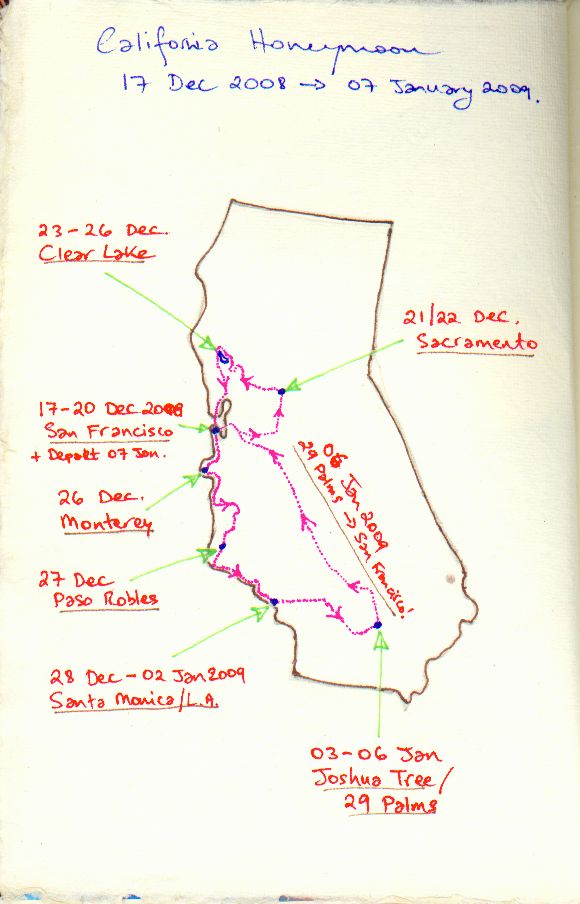 California Honeymoon
17 Dec 2008 → 07 January 2009.
23-26 Dec.
Clear Lake
21/22 Dec.
Sacramento
17-20 Dec 2008
San Francisco
+ Depart 07 Jan.
26 Dec.
Monterey
06 Jan 2009
29 Palms → San Francisco!
27 Dec
Paso Robles
28 Dec - 02 Jan 2009
Santa Monica/L.A.
03-06 Jan
Joshua Tree/
29 Palms